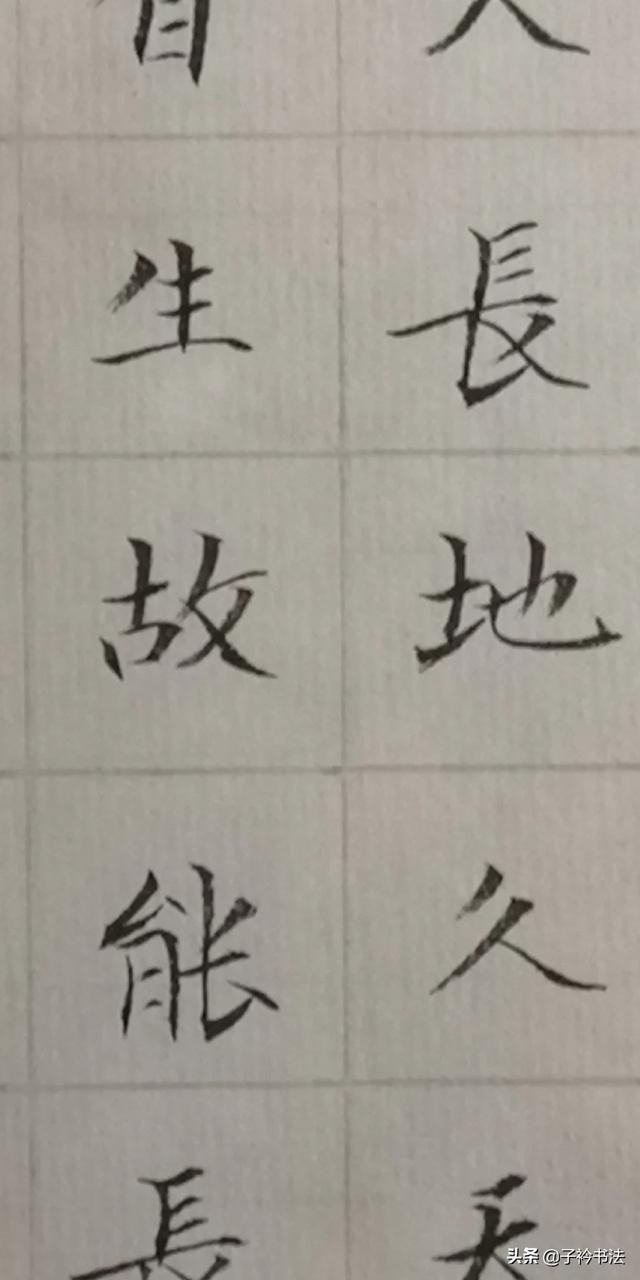 長地久天
生故能長
头条 @子衿书法